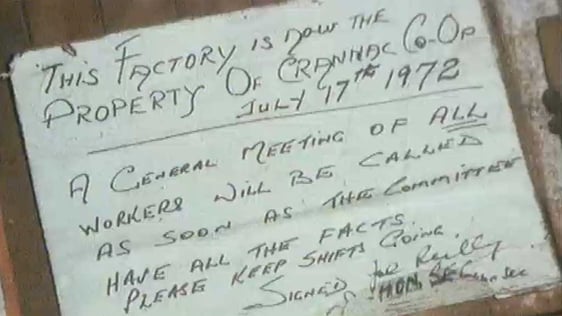 THIS FACTORY IS NOW THE
PROPERTY OF CRANNAC CO-OP
JULY 17TH 1972
A GENERAL MEETING OF ALL
WORKERS WILL BE CALLED
AS SOON AS THE COMMITTEE
HAVE ALL THE FACTS.
PLEASE KEEP SHIFTS GOING.
SIGNED Joe Reilly
HON. SEC